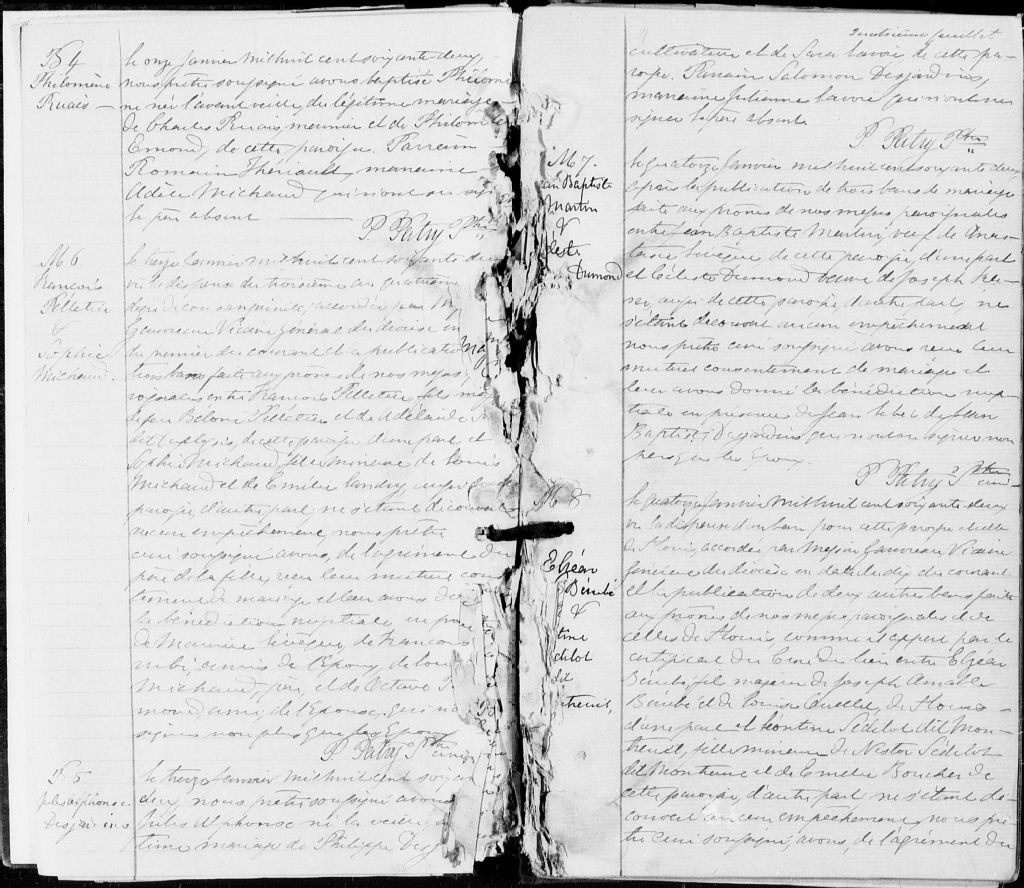 B 4
Philomène
Ruais
Le onze Janvier mil huit cent soixante deux,
nous prêtre soussigné avons baptisé Philomè
ne née l'avant veille du légitime mariage
de Charles Ruais, meunier et de Philomène
Emond, de cette paroisse. Parrain
Romain Thériault, marraine
Adèle Michaud qui n'ont su
le père absent
P. Patry Ptre
M 6
Francois
Pelletier
&
Sophie
Michaud.
Le treize Janvier mil huit cent soixante deux
vu la dispense du troisième au quatrième
degré de consanguinité, accordée par
Gauvreau Vicaire Général du diocèse en
du premier du courant et la publication
trois bans faite aux prônes de nos messes
roissiales entre François Pelletier fils ma
de feu Beloni Pelletier et de Adelaïde
de cette paroisse d'une part et
Sophie Michaud, fille mineure de Louis
Michaud et de Emélie Landry, aussi de
paroisse, d'autre part; ne s'étant découvert
aucun empêchement, nous prêtre
curé soussigné avons, de l'agrément du
père de la fille, reçu leur mutuel consen
tement de mariage et leur avons donné
la bénédiction nuptiale en présence
de Maurice Lévêque, de Francois
amis de l'Epoux, de Louis
Michaud, père, et de Octave
mond, ami de l'Epouse, qui n'ont
signer non plus que les Epoux
P. Patry Ptre curé
B 5
Jules Alphonse
Desjardins
Le treize Janvier mil huit cent soixante
deux, nous prêtre soussigné avons
Jules Alphonse né la veille, du
time mariage de Philippe Desj
Quatrième feuillet
cultivateur et de Sara Lavoie de cette pa-
roisse. Parrain Salomon Desjardins,
marraine Julienne Lavoie qui n'ont su
signer le père absent.
P. Patry Ptre
M 7.
an Baptiste
Martin
&
leste
Dumond
Le quatorze Janvier mil huit cent soixante deux
après la publication de trois bans de mariage
faite aux prônes de nos messes paroissiales
entre Jean Baptiste Martin, veuf de Anas-
tasie Lévêque de cette paroisse, d'une part
et Céleste Dumond veuve de Joseph
aussi de cette paroisse, d'autre part ne
s'étant découvert aucun empêchement
nous prêtre curé soussigné avons reçu leur
mutuel consentement de mariage et
leur avons donné la bénédiction nup-
tiale en présence de Jean
Baptiste Desjardins qui n'ont su signer non
plus que les Epoux.
P. Patry Ptre curé
M 8
Elzéar
Bérubé
&
tine
delot
dit
treuil,
Le quatorze Janvier mil huit cent soixante deux
vu la dispense d'un ban pour cette paroisse et celle
de St Louis, accordée par Messire Gauvreau Vicaire
Général du diocèse en date du dix du courant
et la publication de deux autres bans faite
aux prônes de nos messes paroissiales et de
celles de St Louis, comme il appert par le
certificat du Curé du lieu entre Elzéar
Bérubé, fils majeur de Joseph Amable
Bérubé et de Louise Ouellet, de St Louis
d'une part et Léontine Sédelot dit Mon-
treuil, fille mineure de Nestor Sédelot
dit Montreuil et de Emélie Boucher de
cette paroisse, d'autre part ne s'étant dé-
couvert aucun empêchement, nous prê-
tre curé soussigné, avons, de l'agrément du